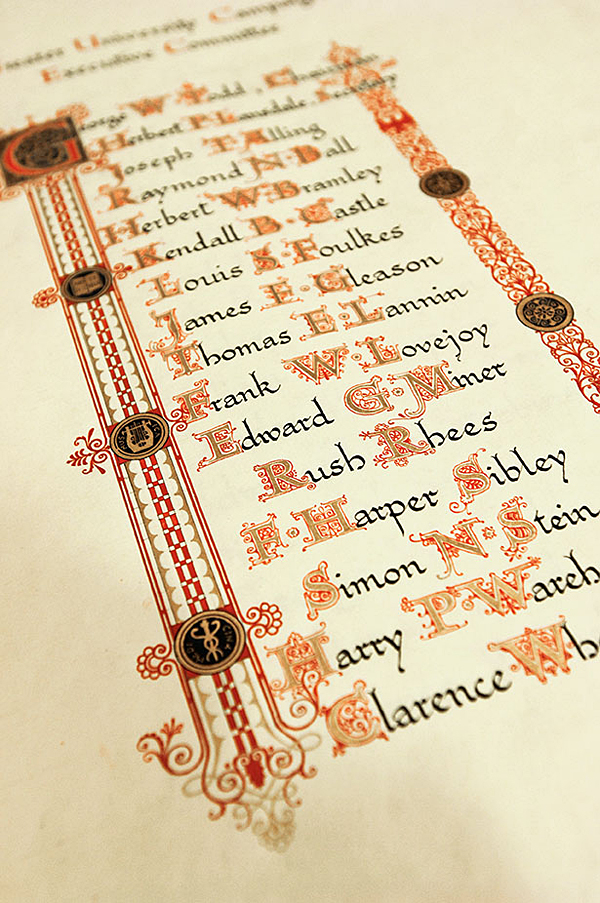 University Campaign
Executive Committee
George W. Todd, Chairman
Herbert P. Lansdale, Secretary
Joseph T. Alling
Raymond N. Ball
Herbert W. Bramley
Kendall B. Castle
Louis S. Foulkes
James E. Gleason
Thomas E. Lannin
Frank W. Lovejoy
Edward G. Miner
Rush Rhees
F. Harper Sibley
Simon N. Stein
Harry P. Wareh
Clarence Whe